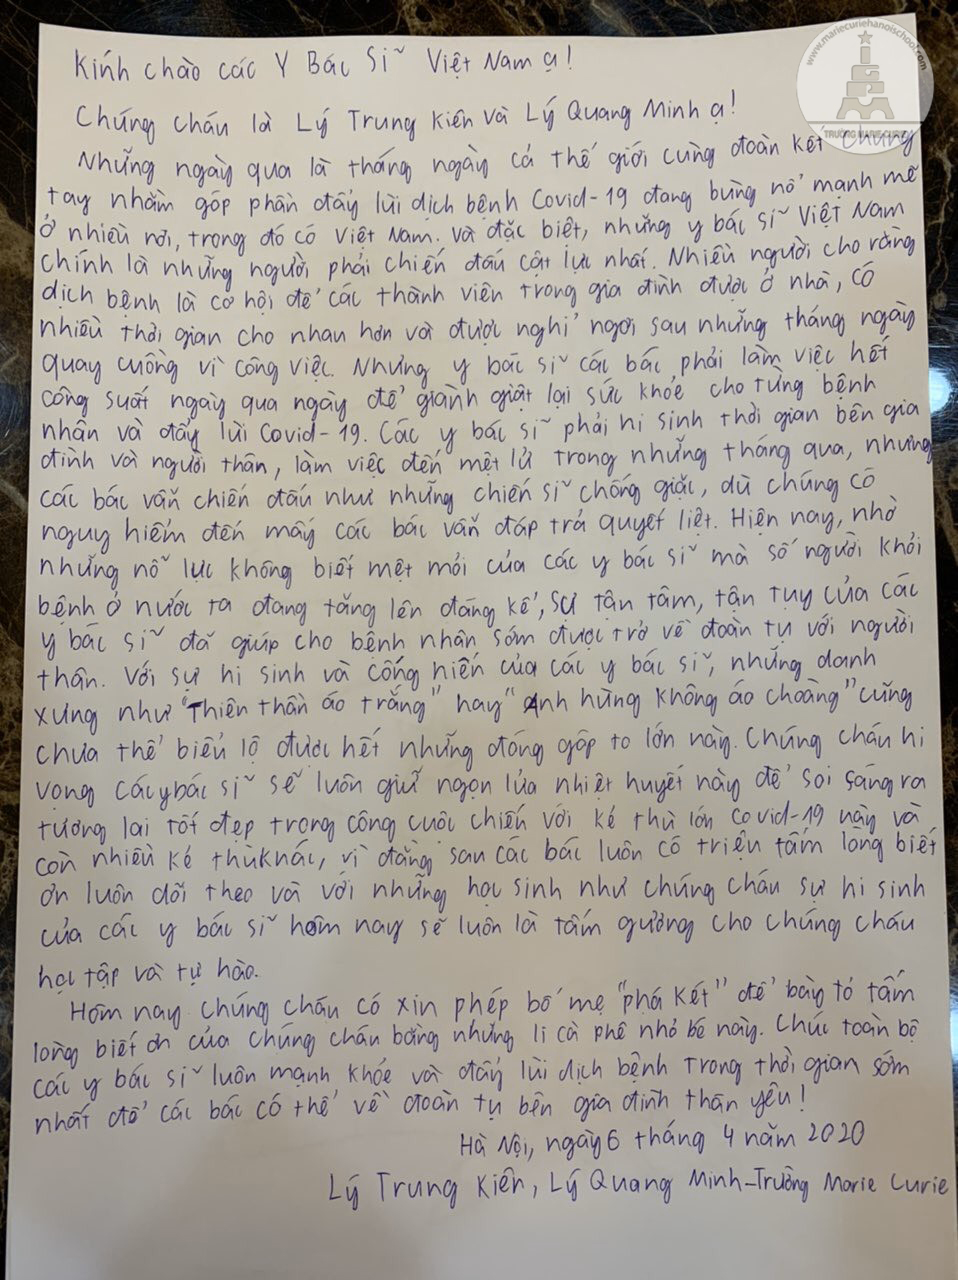 www.mariecuriehanoischool.com
TRƯỜNG MARIE CURIE
Kính chào các Y Bác Sĩ Việt Nam ạ!
Chúng cháu là Lý Trung Kiên và Lý Quang Minh ạ!
Những ngày qua là tháng ngày cả thế giới cùng đoàn kết chung
tay nhằm góp phần đẩy lùi dịch bệnh Covid-19 đang bùng nổ mạnh mẽ
ở nhiều nơi, trong đó có Việt Nam. Và đặc biệt, những y bác sĩ Việt Nam
chính là những người phải chiến đấu cật lực nhất. Nhiều người cho rằng
dịch bệnh là cơ hội để các thành viên trong gia đình được ở nhà, có
nhiều thời gian cho nhau hơn và được nghỉ ngơi sau những tháng ngày
quay cuồng vì công việc. Nhưng y bác sĩ các bác phải làm việc hết
công suất ngày qua ngày để giành giật lại sức khỏe cho từng bệnh
nhân và đẩy lùi Covid-19. Các y bác sĩ phải hi sinh thời gian bên gia
đình và người thân, làm việc đến mệt lử trong những tháng qua, nhưng
các bác vẫn chiến đấu như những chiến sĩ chống giặc, dù chúng có
nguy hiểm đến mấy các bác vẫn đáp trả quyết liệt. Hiện nay, nhờ
những nỗ lực không biết mệt mỏi của các y bác sĩ mà số người khỏi
bệnh ở nước ta đang tăng lên đáng kể, sự tận tâm, tận tụy của các
y bác sĩ đã giúp cho bệnh nhân sớm được trở về đoàn tụ với người
thân. Với sự hi sinh và cống hiến của các y bác sĩ, những danh
xưng như "Thiên thần áo trắng" hay "Anh hùng không áo choàng" cũng
chưa thể biểu lộ được hết những đóng góp to lớn này. Chúng cháu hi
vọng các y bác sĩ sẽ luôn giữ ngọn lửa nhiệt huyết này để soi sáng ra
tương lai tốt đẹp trong công cuộc chiến với kẻ thù lớn Covid-19 này và
còn nhiều kẻ thù khác, vì đằng sau các bác luôn có triệu tấm lòng biết
ơn luôn dõi theo và với những học sinh như chúng cháu sự hi sinh
của các y bác sĩ hôm nay sẽ luôn là tấm gương cho chúng cháu
học tập và tự hào.
Hôm nay chúng cháu có xin phép bố mẹ "phá két" để bày tỏ tấm
lòng biết ơn của chúng cháu bằng những li cà phê nhỏ bé này. Chúc toàn bộ
các y bác sĩ luôn mạnh khỏe và đẩy lùi dịch bệnh trong thời gian sớm
nhất để các bác có thể về đoàn tụ bên gia đình thân yêu!
Hà Nội, ngày 6 tháng 4 năm 2020
Lý Trung Kiên, Lý Quang Minh - Trường Marie Curie